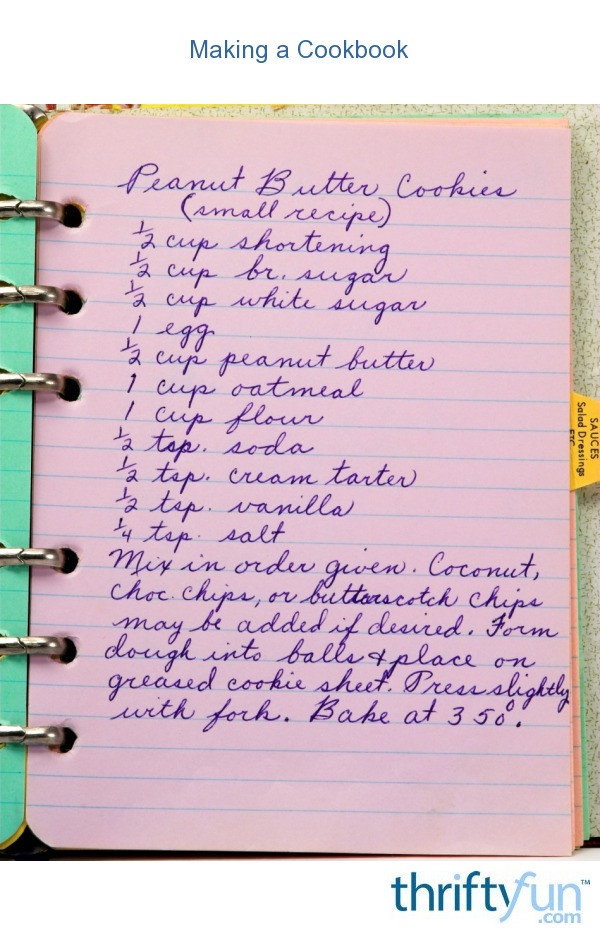 Making a Cookbook
Peanut Butter Cookies
(small recipe)
1/2 cup shortening
1/2 cup br. sugar
1/2 cup white sugar
1 egg
1/2 cup peanut butter
1 cup oatmeal
1 cup flour
1/2 tsp. soda
1/2 tsp. cream tarter
1/2 tsp. vanilla
1/4 tsp. salt
Mix in order given. Coconut,
choc. chips, or butterscotch chips
may be added if desired. Form
dough into balls & place on
greased cookie sheet. Press slightly
with fork. Bake at 350°.
SAUCES
Salad Dressings
ETC
thriftyfun™
.com